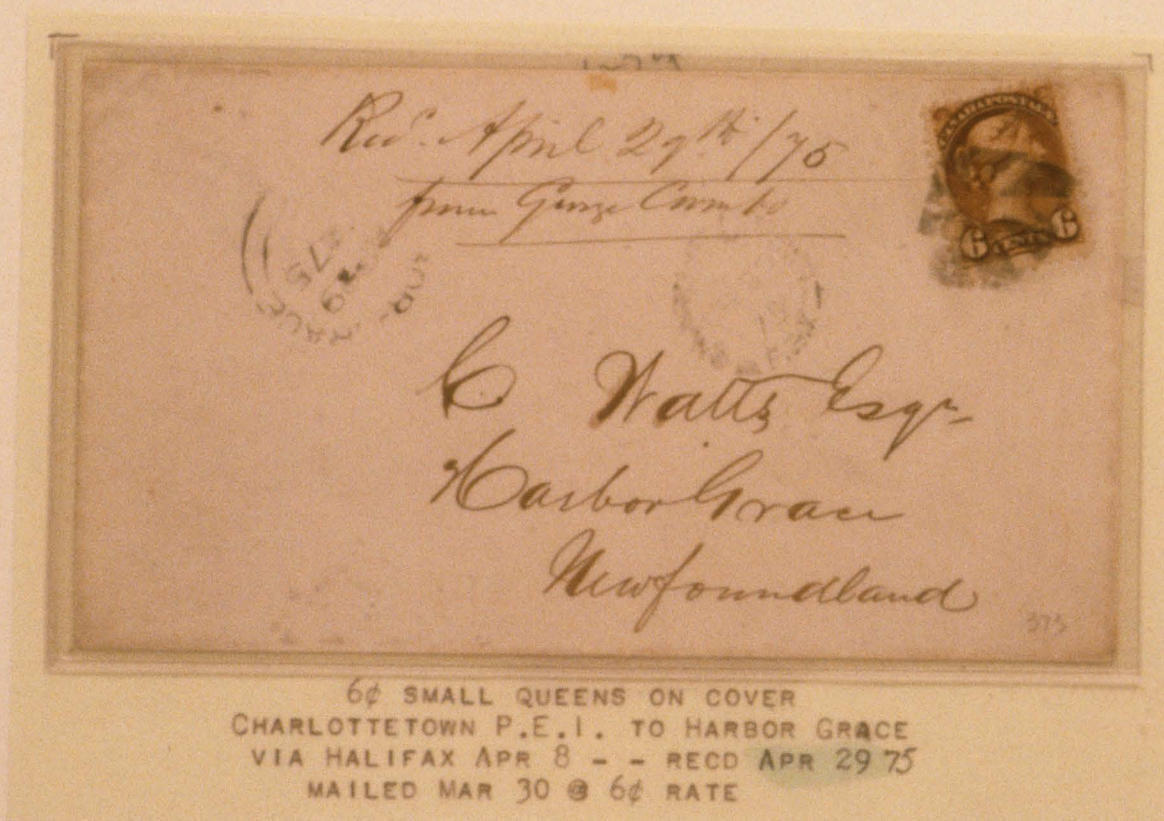 Rec'd. April 29th/75
from George Coombs
CANADA POSTAGE
6 CENTS 6
75
29
C Watts Esqr
Harbor Grace
Newfoundland
373
6¢ SMALL QUEENS ON COVER
CHARLOTTETOWN P.E.I. TO HARBOR GRACE
VIA HALIFAX APR 8 - - RECD APR 29 75
MAILED MAR 30 @ 6¢ RATE